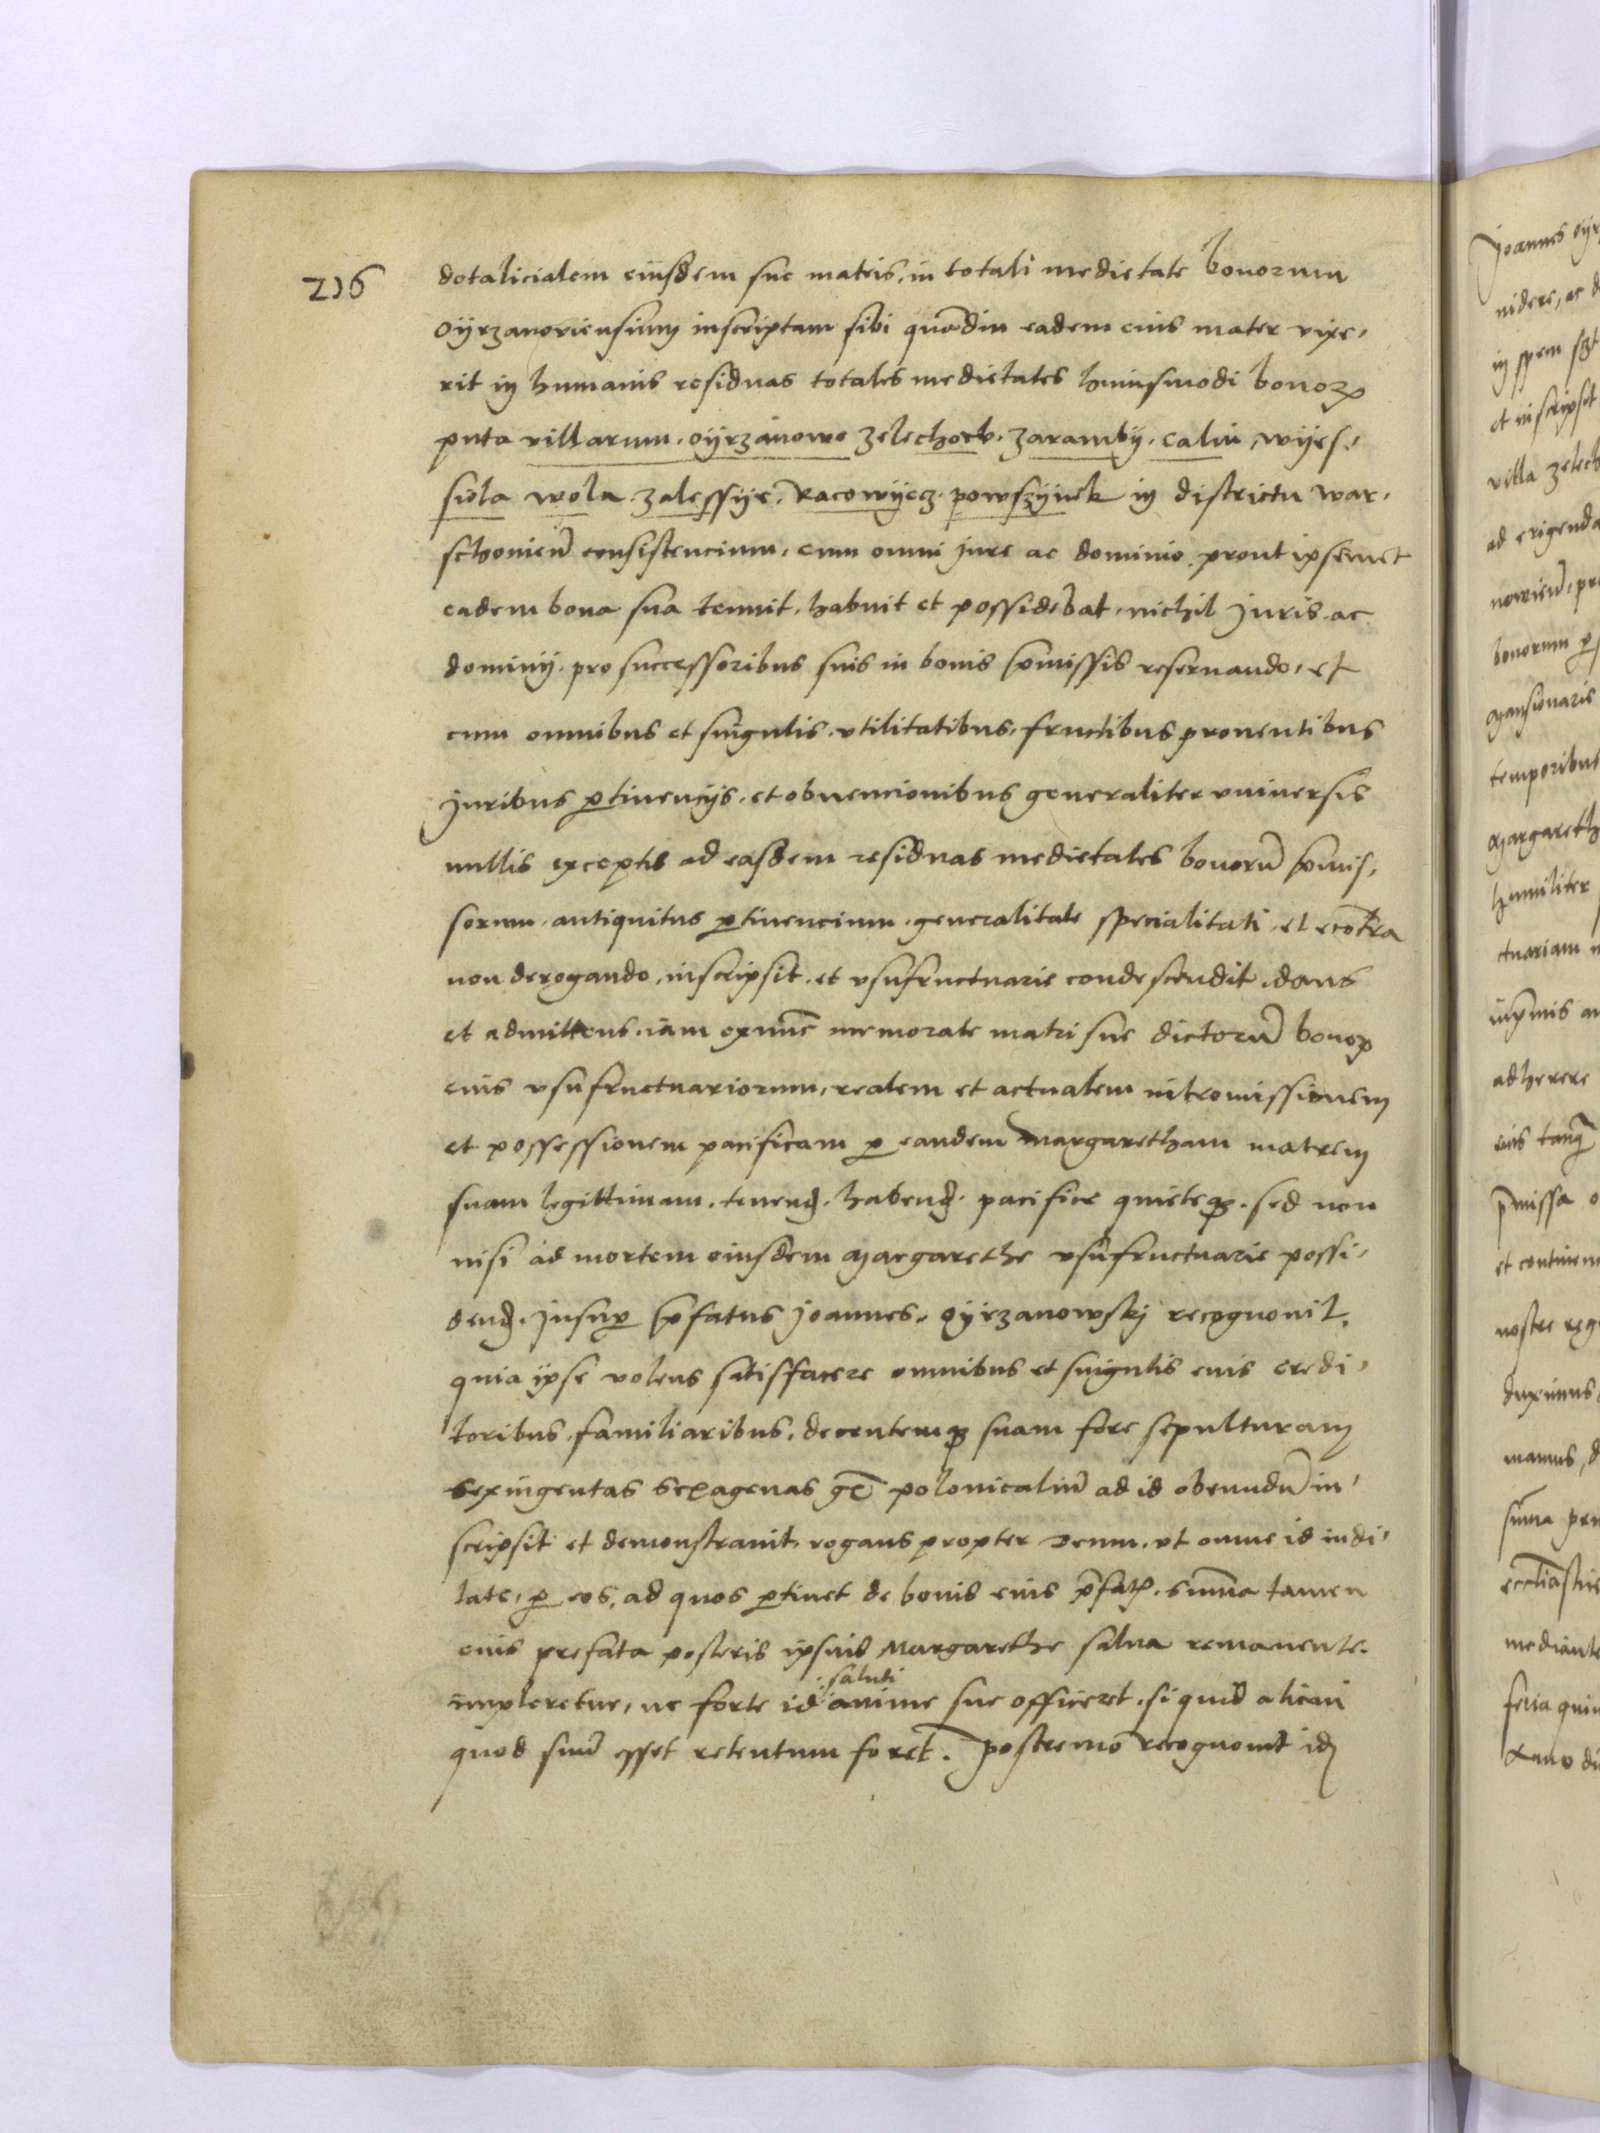 216
dotalicialem eiusdem sue matris, in totali medietate bonorum
Oyrzanoviensium inscriptam sibi quādiu eadem eius mater vixe,
rit in humanis residuas totales medietates huiusmodi bonoꝝ
puta villarum, Oyrzanowo Zelechow. Zaramby, Calin, Wyes,
siola Wola. Zalessye. Racowyecz. Powszynek in districtu War,
schovieñ consistencium, cum omni jure ac dominio. prout ipsemet
eadem bona sua tenuit, habuit et possidebat, nichil juris ac
dominij. pro successoribus suis in bonis p̄missis reservando, et
cum omnibus et singulis. utilitatibus, fructibus proventibus
juribus ꝑtinencijs. et obvencionibus generaliter universis
nullis exceptis ad easdem residuas medietates bonorū p̄mis,
sorum, antiquitus ꝑtinencium, generalitate specialitati, et ecōtra
non derogando, inscripsit. et usufructuarie condescendit. dans
et admittens. iam exnūc memorate matri sue dictorū bonoꝝ
eius usufructuariorum, realem et actualem intromissionem
et possessionem pacificam ꝑ eandem Margaretham matrem
suam legittimam. tenend. habend. pacifice quieteqꝫ. sed non
nisi ad mortem eiusdem Margarethe usufructuarie possi,
dend. Insuꝑ p̄fatus Joannes. Oyrzanowskj recognovit.
quia ipse volens satisfacere omnibus et singulis eius credi,
toribus, familiaribus, decentemqꝫ suam fore sepulturam
sexingentas sexagenas gē polonicaliū ad id obeundū in,
scripsit et demonstravit. rogans propter Deum. ut omne id indi,
late, ꝑ eos, ad quos ꝑtinet de bonis eius p̄fatꝭ. sum̄a tamen
eius prefata posteris ipsius Margarethe salva remanente.
impleretur, ne forte id saluti anime sue officeret. si quid alicui
quod suū esset retentum foret. Postremo recognovit idꝫ